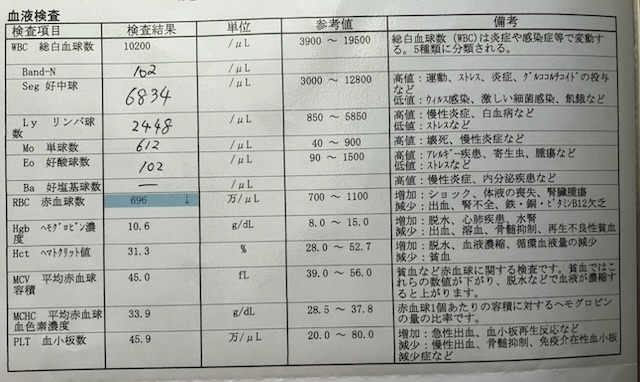 血液検査
検査項目 検査結果 単位 参考値 備考
WBC 総白血球数 10200 /μL 3900 ～ 19500 総白血球数(WBC)は炎症や感染症等で変動する。5種類に分類される。
Band-N 102 /μL
Seg 好中球 6834 /μL 3000 ～ 12800 高値：運動、ストレス、炎症、グルココルチコイドの投与など
低値：ウィルス感染、激しい細菌感染、飢餓など
Ly リンパ球数 2448 /μL 850 ～ 5850 高値：慢性炎症、白血病など
低値：ストレスなど
Mo 単球数 612 /μL 40 ～ 900 高値：壊死、慢性炎症など
Eo 好酸球数 102 /μL 90 ～ 1500 高値：アレルギー疾患、寄生虫、腫瘍など
低値：ストレスなど
Ba 好塩基球数 — /μL 高値：慢性炎症、内分泌疾患など
RBC 赤血球数 696 ↓ 万/μL 700 ～ 1100 増加：ショック、体液の喪失、腎臓腫瘍
減少：出血、腎不全、鉄・銅・ビタミンB12欠乏
Hgb ヘモグロビン濃度 10.6 g/dL 8.0 ～ 15.0 増加：脱水、心肺疾患、水腎
減少：出血、溶血、骨髄抑制、再生不良性貧血
Hct ヘマトクリット値 31.3 % 28.0 ～ 52.7 増加：脱水、血液濃縮、循環血液量の減少
減少：貧血
MCV 平均赤血球容積 45.0 fL 39.0 ～ 56.0 貧血など赤血球に関する検査です。貧血ではこれらの数値が下がり、脱水などで血液が濃縮すると上がります。
MCHC 平均赤血球血色素濃度 33.9 g/dL 28.5 ～ 37.8 赤血球1個あたりの容積に対するヘモグロビンの量の比率です。
PLT 血小板数 45.9 万/μL 20.0 ～ 80.0 増加：急性出血、血小板再生反応など
減少：慢性出血、骨髄抑制、免疫介在性血小板減少症など